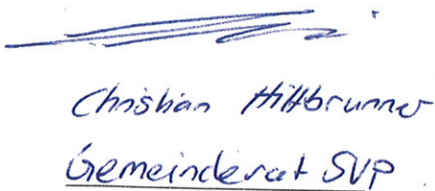 Christian Hiltbrunner
Gemeinderat SVP